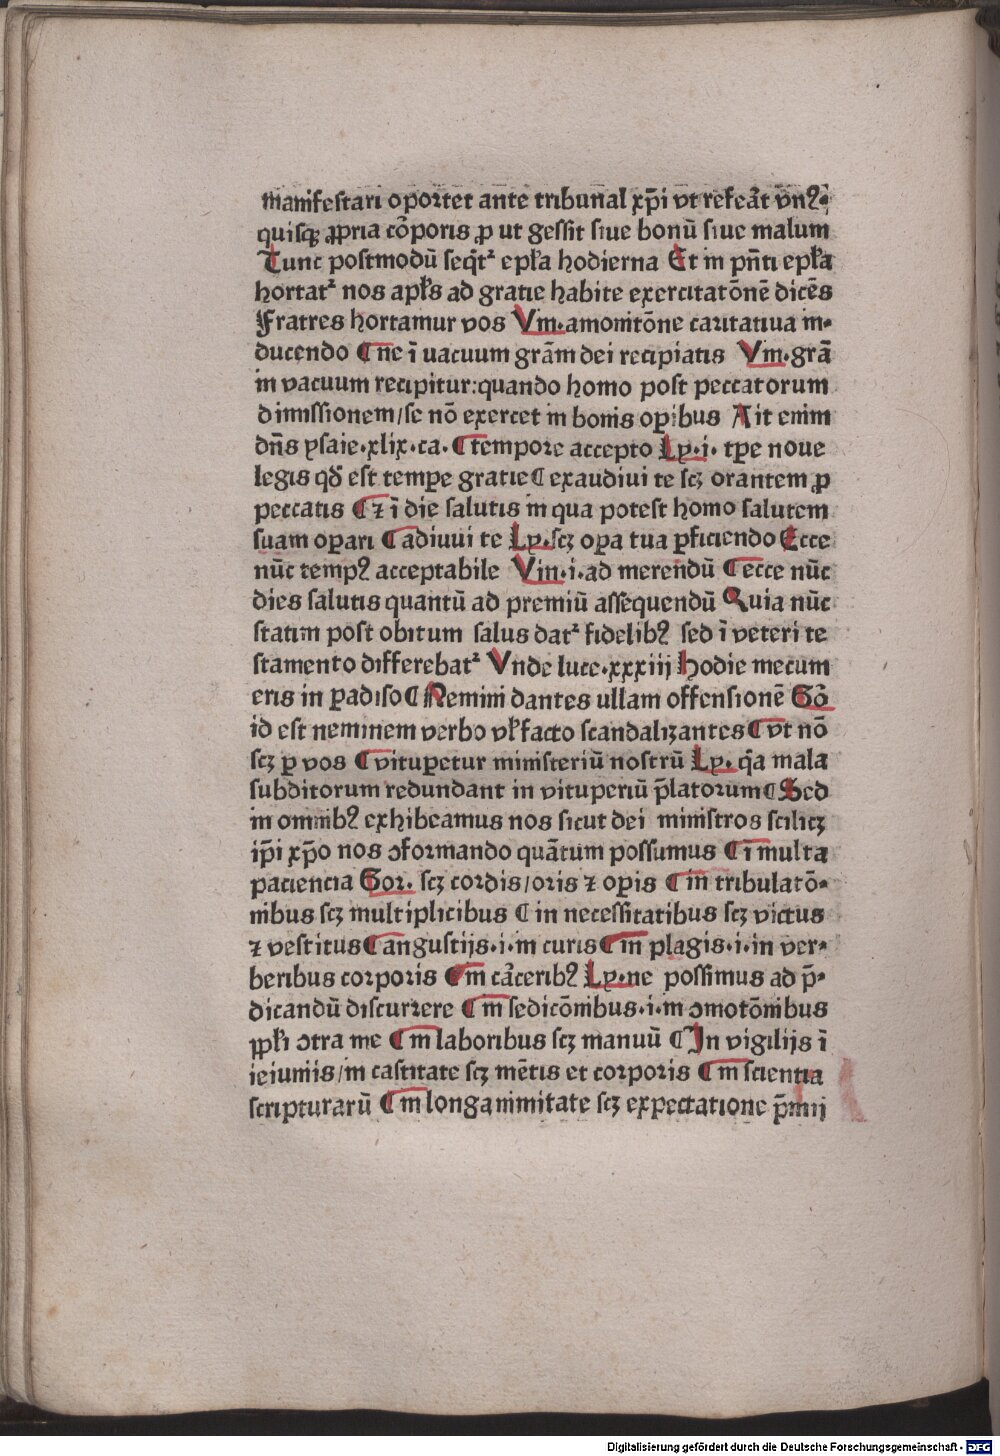 manifestari oportet ante tribunal xp̄i vt refeāt vn⁹⸗
quisqꝫ ꝓpria cōporis ꝓ ut gessit siue bonū siue malum
Tunc postmodū seq̄t᷑ epl̄a hodierna Et in pn̄ti epl̄a
hortat᷑ nos apl̄s ad gratie habite exercitatōnē dicēs
Fratres hortamur vos Vin.amonitōne caritatiua in⸗
ducendo ¶ ne ī vacuum grām dei recipiatis Vin.grā
in vacuum recipitur:quando homo post peccatorum
dimissionem/se nō exercet in bonis oꝑibus Ait enim
dn̄s ysaie.xlix.ca. ¶ tempore accepto Ly.i. tꝑe noue
legis qđ est temꝑe gratie ¶ exaudiui te scꝫ orantem ꝓ
peccatis ¶ ⁊ ī die salutis in qua potest homo salutem
suam oꝑari ¶ adiuui te Ly.scꝫ oꝑa tua ꝑficiendo Ecce
nūc temp⁹ acceptabile Vin.i.ad merendū ¶ ecce nūc
dies salutis quantū ad premiū assequendū Quia nūc
statim post obitum salus dat᷑ fidelib⁹ sed ī veteri te
stamento differebat᷑ Vnde luce.xxxiij Hodie mecum
eris in ꝑadiso ¶ Nemini dantes ullam offensionē Gō
id est neminem verbo vl̄ facto scandalizantes ¶ vt nō
scꝫ ꝑ vos ¶ vituꝑetur ministeriū nostrū Ly. q̄a mala
subditorum redundant in vituperiū p̄latorum ¶ Sed
in omnib⁹ exhibeamus nos sicut dei ministros scilicꝫ
ip̄i xp̄o nos ↄformando quātum possumus ¶ ī multa
paciencia Gor. scꝫ cordis/oris ⁊ oꝑis ¶ in tribulatō⸗
nibus scꝫ multiplicibus ¶ in necessitatibus scꝫ victus
⁊ vestitus ¶ angustijs.i.in curis ¶ in plagis.i.in ver⸗
beribus corporis ¶ in cāceribꝰ Ly.ne possimus ad p̄⸗
dicandū discurrere ¶ in sedicōnibus.i.in ↄmotōnibus
ꝓpl̄i ↄtra me ¶ in laboribus scꝫ manuū ¶ In vigilijs ī
ieiuniis/in castitate scꝫ mētis et corporis ¶ in scientia
scripturarū ¶ in longanimitate scꝫ expectatione p̄mij
Digitalisierung gefördert durch die Deutsche Forschungsgemeinschaft - DFG